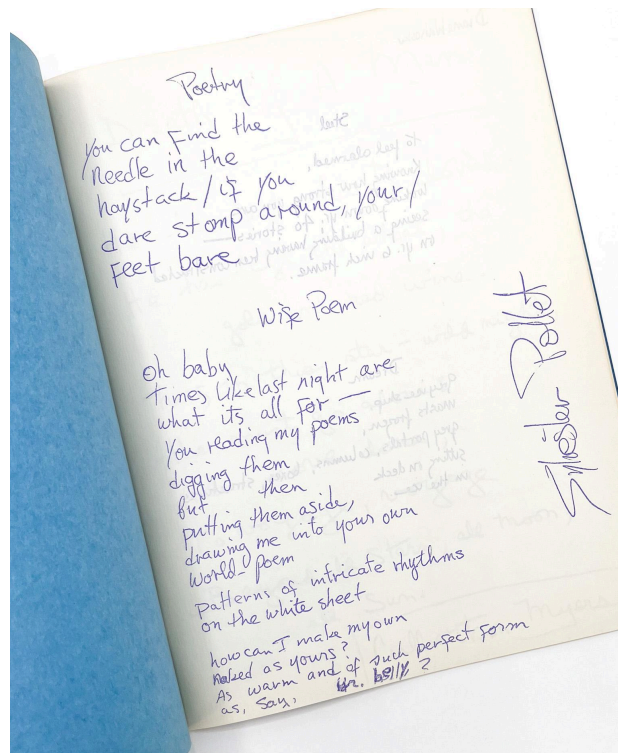 Poetry
You can Find the
needle in the
haystack / if you
dare stomp around, your /
feet bare
Wife Poem
oh baby
times like last night are
what its all for —
You reading my poems
digging them
but then
putting them aside,
drawing me into your own
world-poem
patterns of intricate rhythms
on the white sheet
how can I make my own
naked as yours?
As warm and of such perfect form
as, say, yr. belly?
Sylvester Pollet